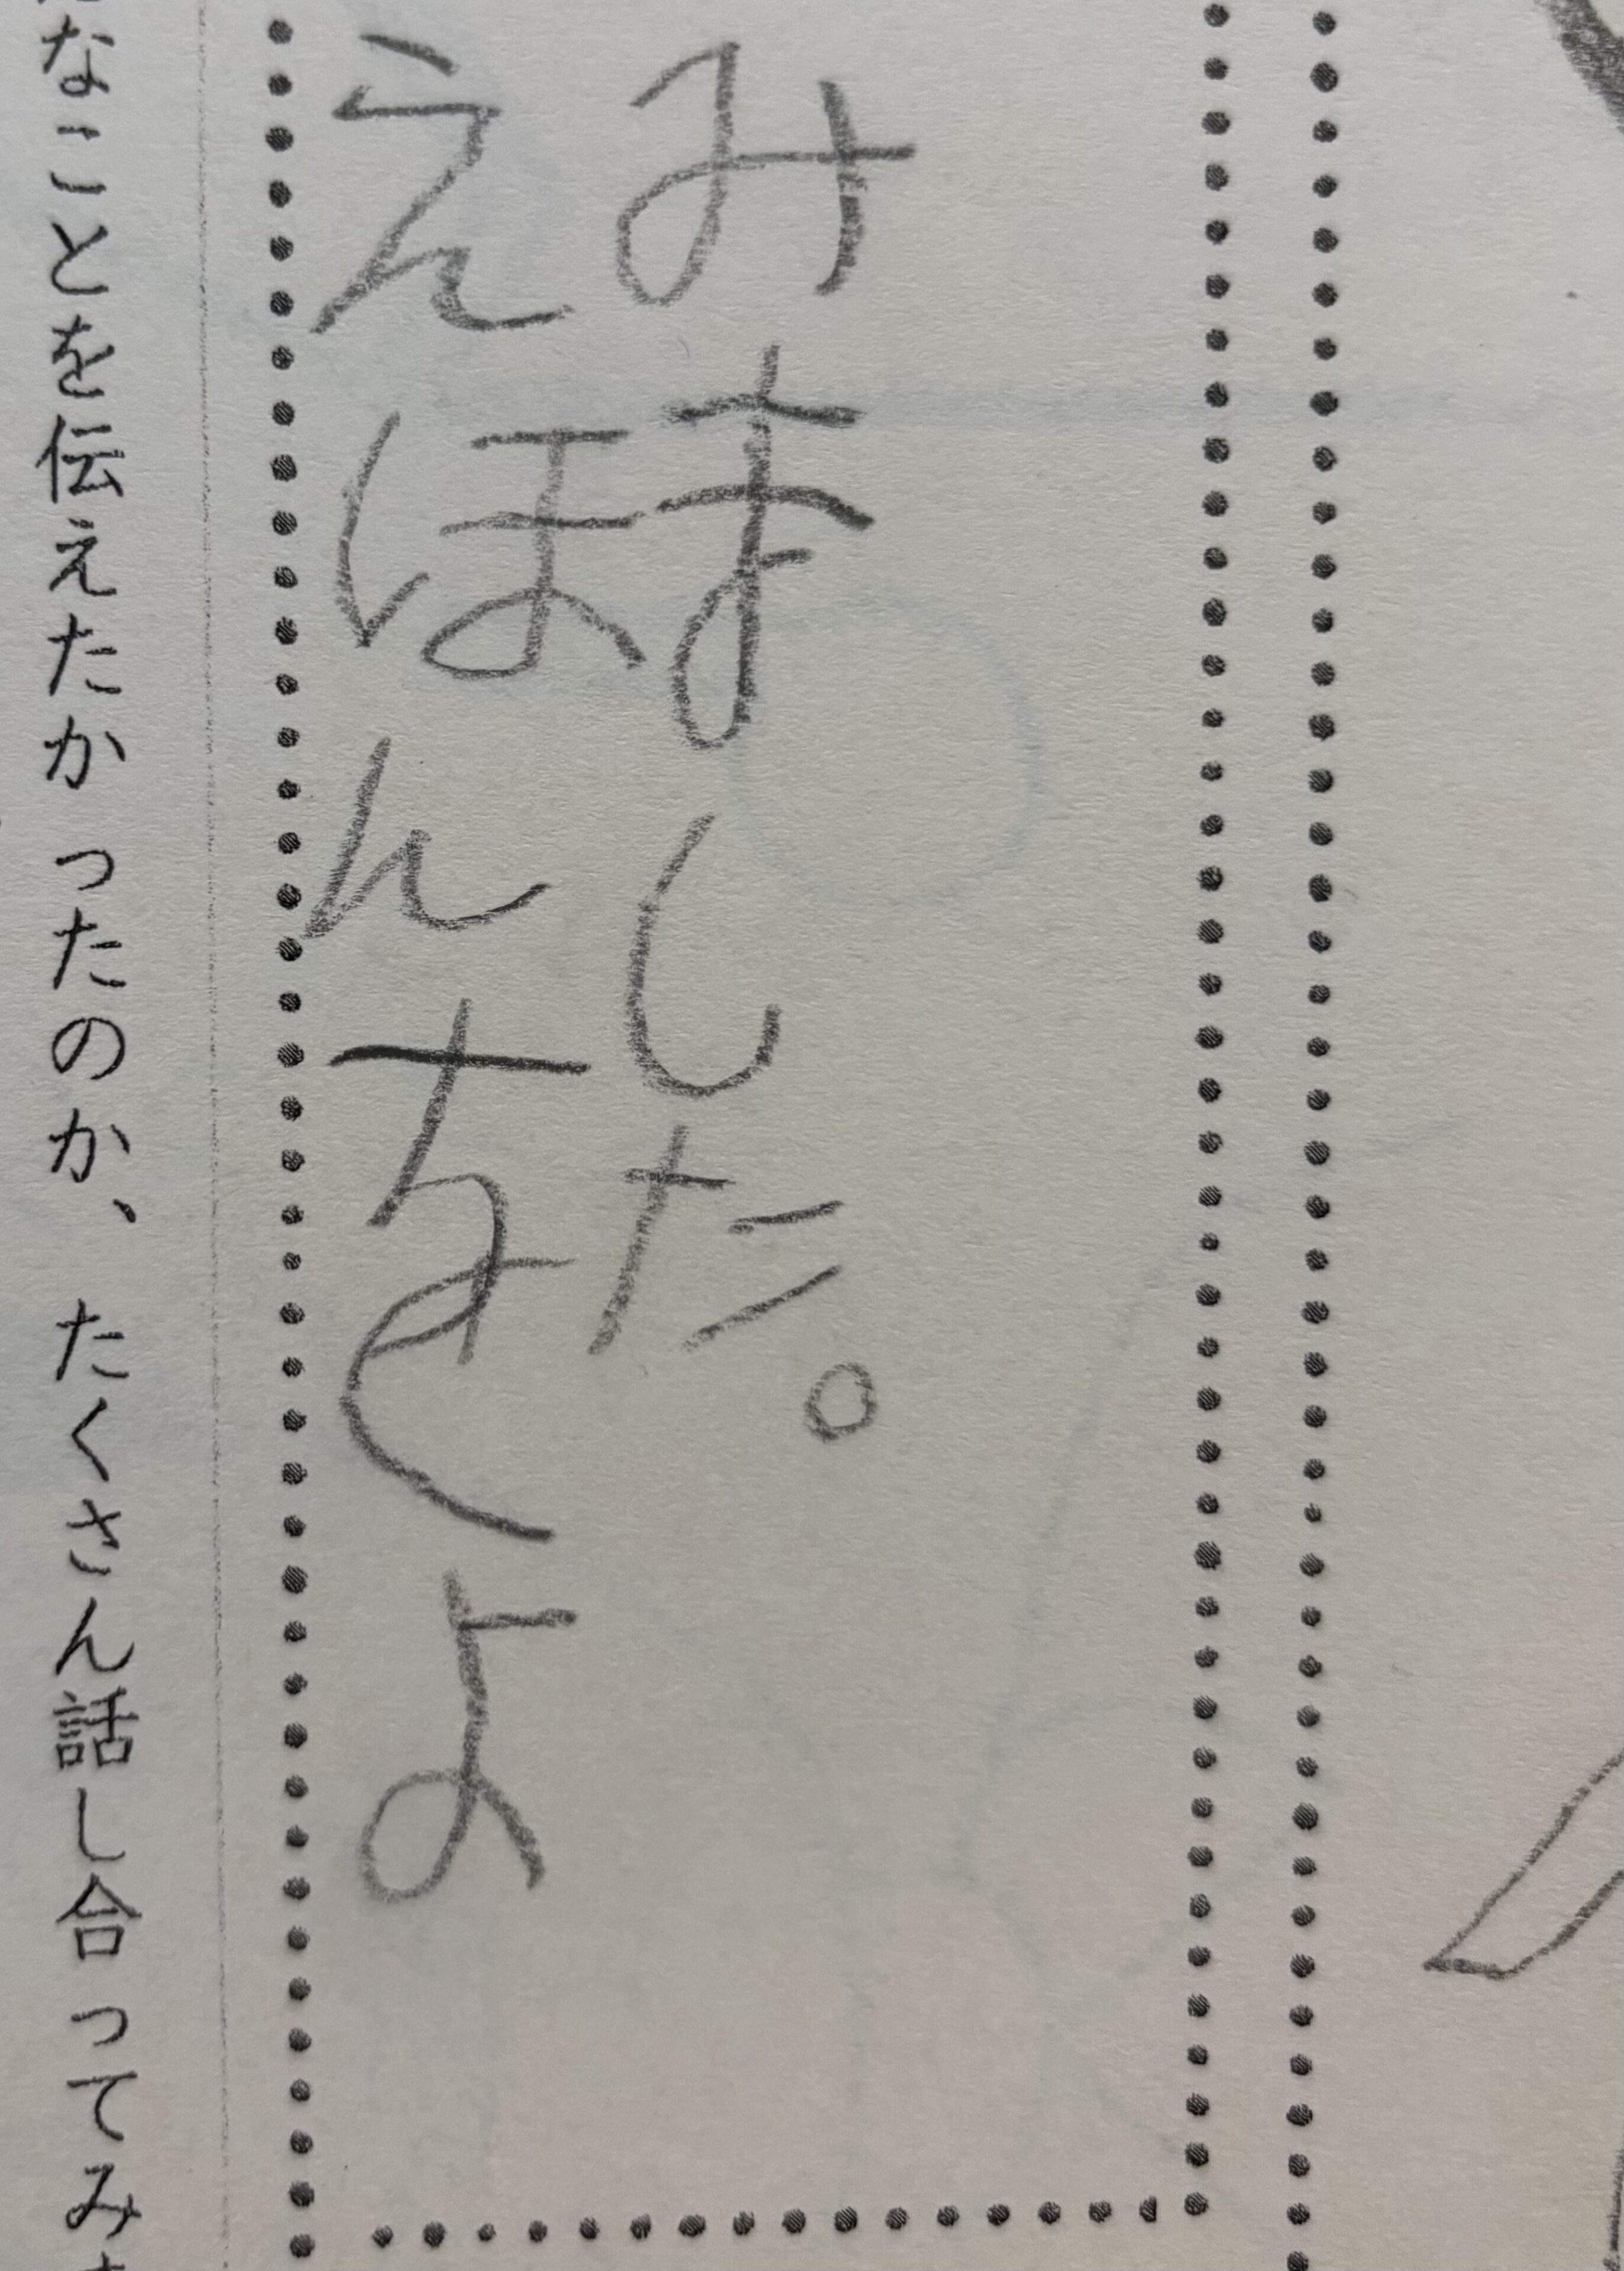 えほんをよ
みました。
なことを伝えたかったのか、たくさん話し合ってみ